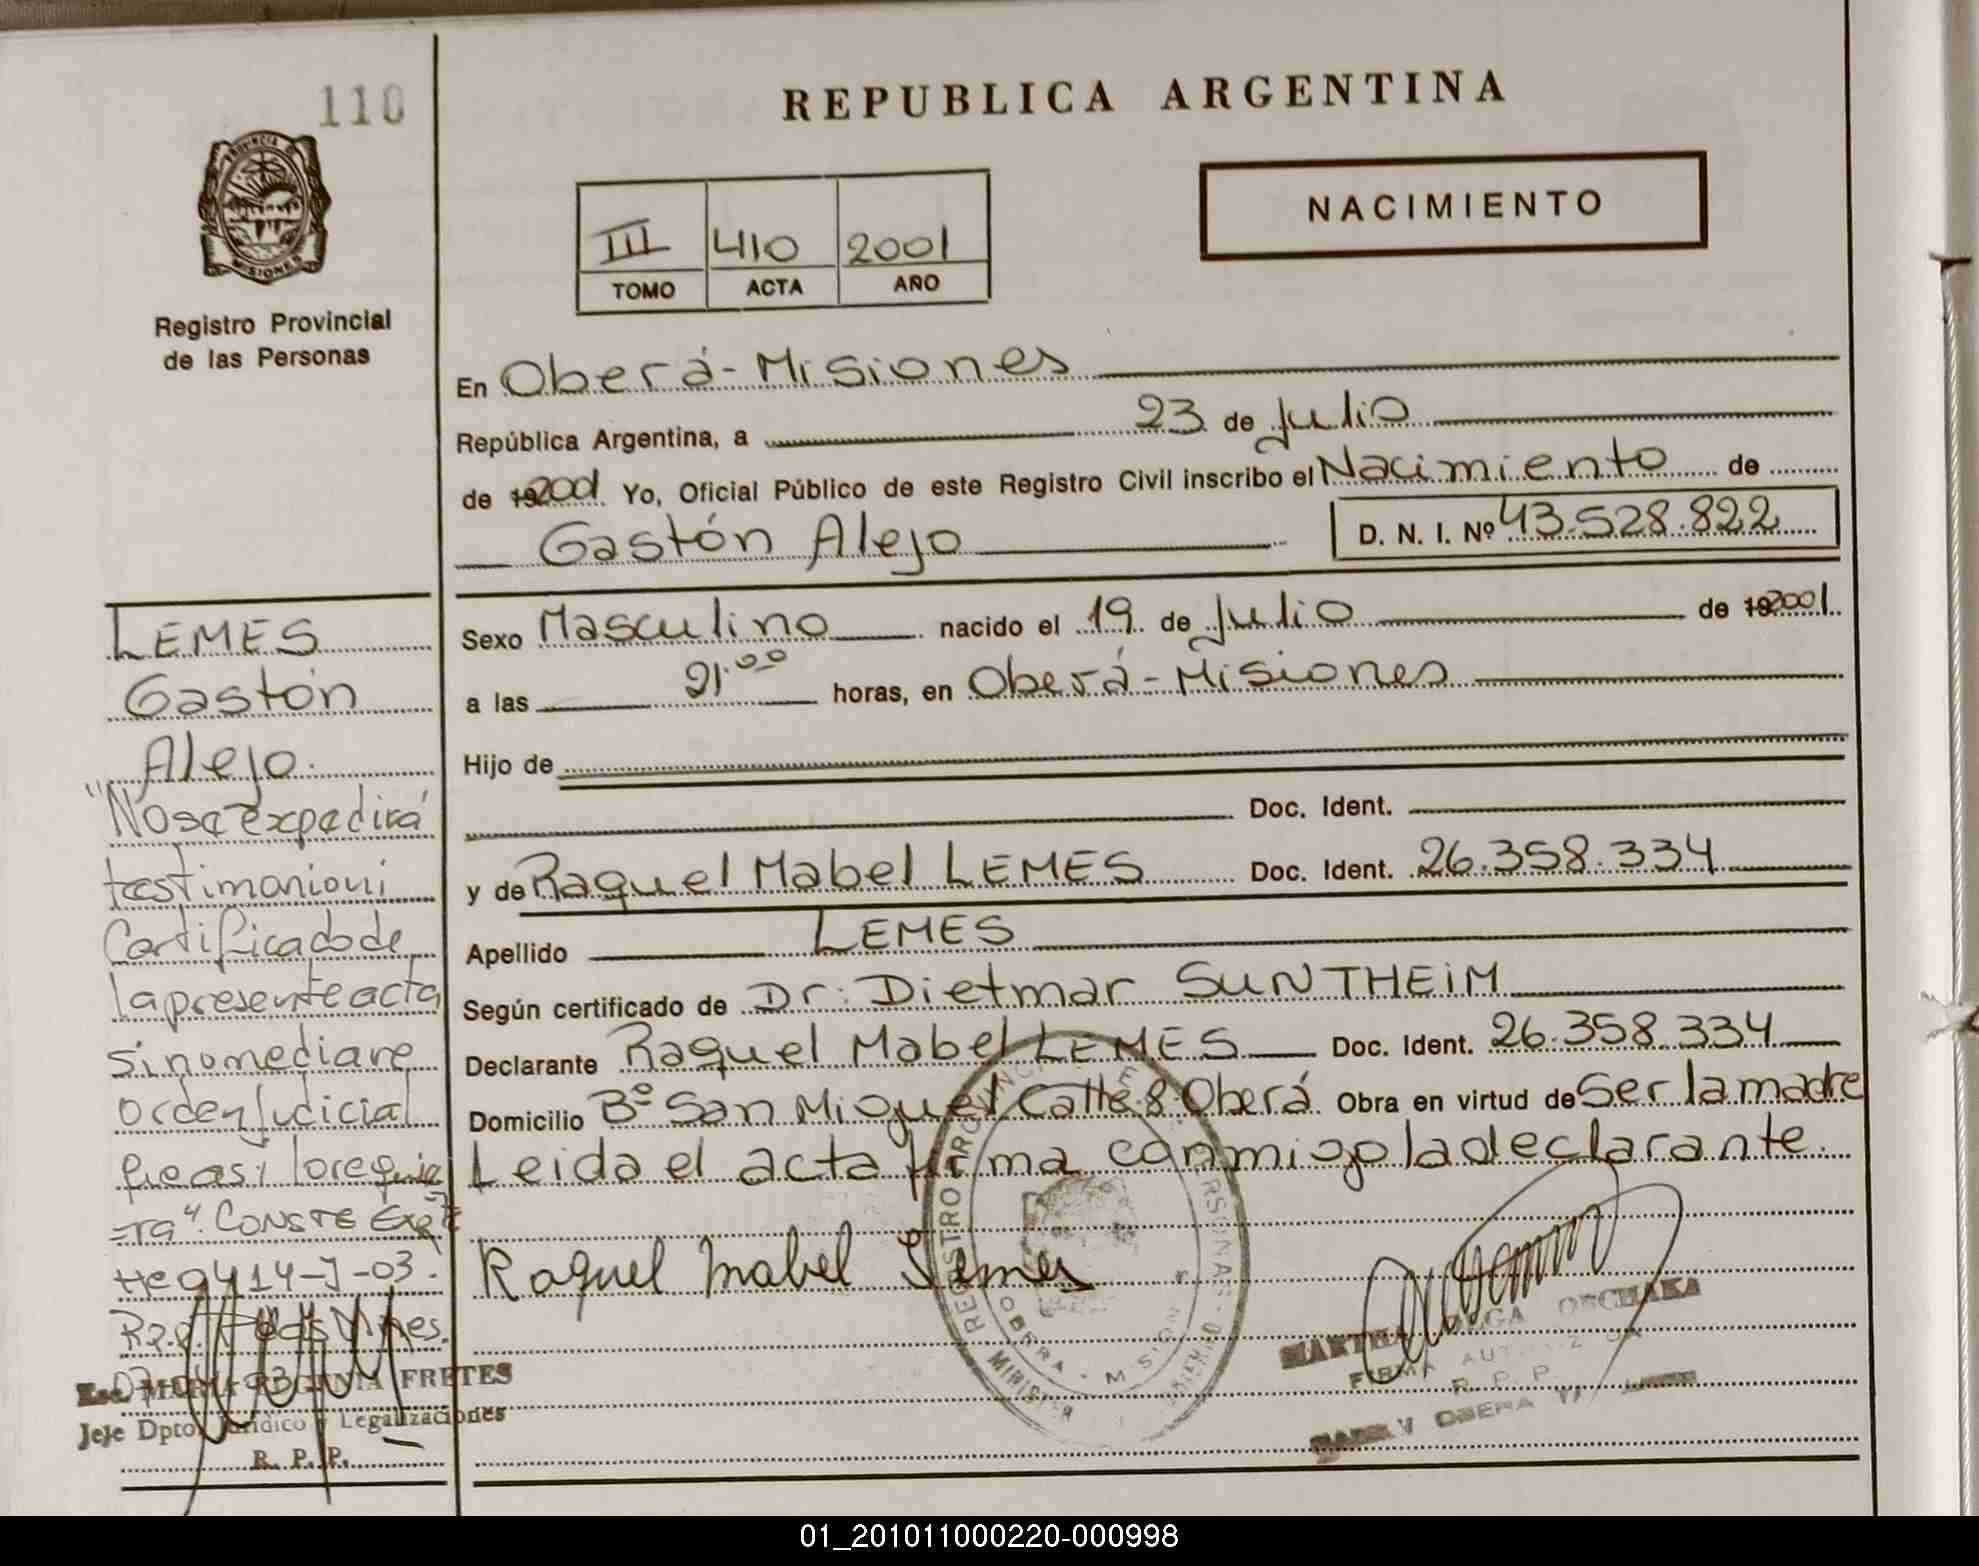 110
PROVINCIA DE
MISIONES
Registro Provincial
de las Personas
REPUBLICA ARGENTINA
NACIMIENTO
III 410 2001
TOMO ACTA AÑO
En Oberá-Misiones
República Argentina, a 23 de Julio
de 192001 Yo, Oficial Público de este Registro Civil inscribo el Nacimiento de
Gastón Alejo D. N. I. Nº 43.528.822
Sexo Masculino nacido el 19 de Julio de 192001
a las 21.00 horas, en Oberá-Misiones
Hijo de
Doc. Ident.
y de Raquel Mabel LEMES Doc. Ident. 26.358.334
Apellido LEMES
Según certificado de Dr: Dietmar SUNTHEIM
Declarante Raquel Mabel LEMES Doc. Ident. 26.358.334
Domicilio Bº San Miguel Calle 8 Oberá Obra en virtud de Ser la madre
Leida el acta firma conmigo la declarante.
Raquel Mabel Lemes
LEMES
Gastón
Alejo.
"No se expedirá
testimonio ni
Certificado de
la presente acta
sino mediare
orden judicial
que asi lo requie
=ra". CONSTE Expte
9414-J-03.
R.P.P. Posadas Mnes.
Esc. MARIA REGINIA FRETES
Jefe Dpto. Jurídico y Legalizaciones
R. P. P.
REGISTRO PROVINCIAL DE LAS PERSONAS
OBERA - MISIONES
MINISTERIO
MARTHA OLGA
FIRMA AUTORIZADA
R. P. P.
OBERA
01_201011000220-000998